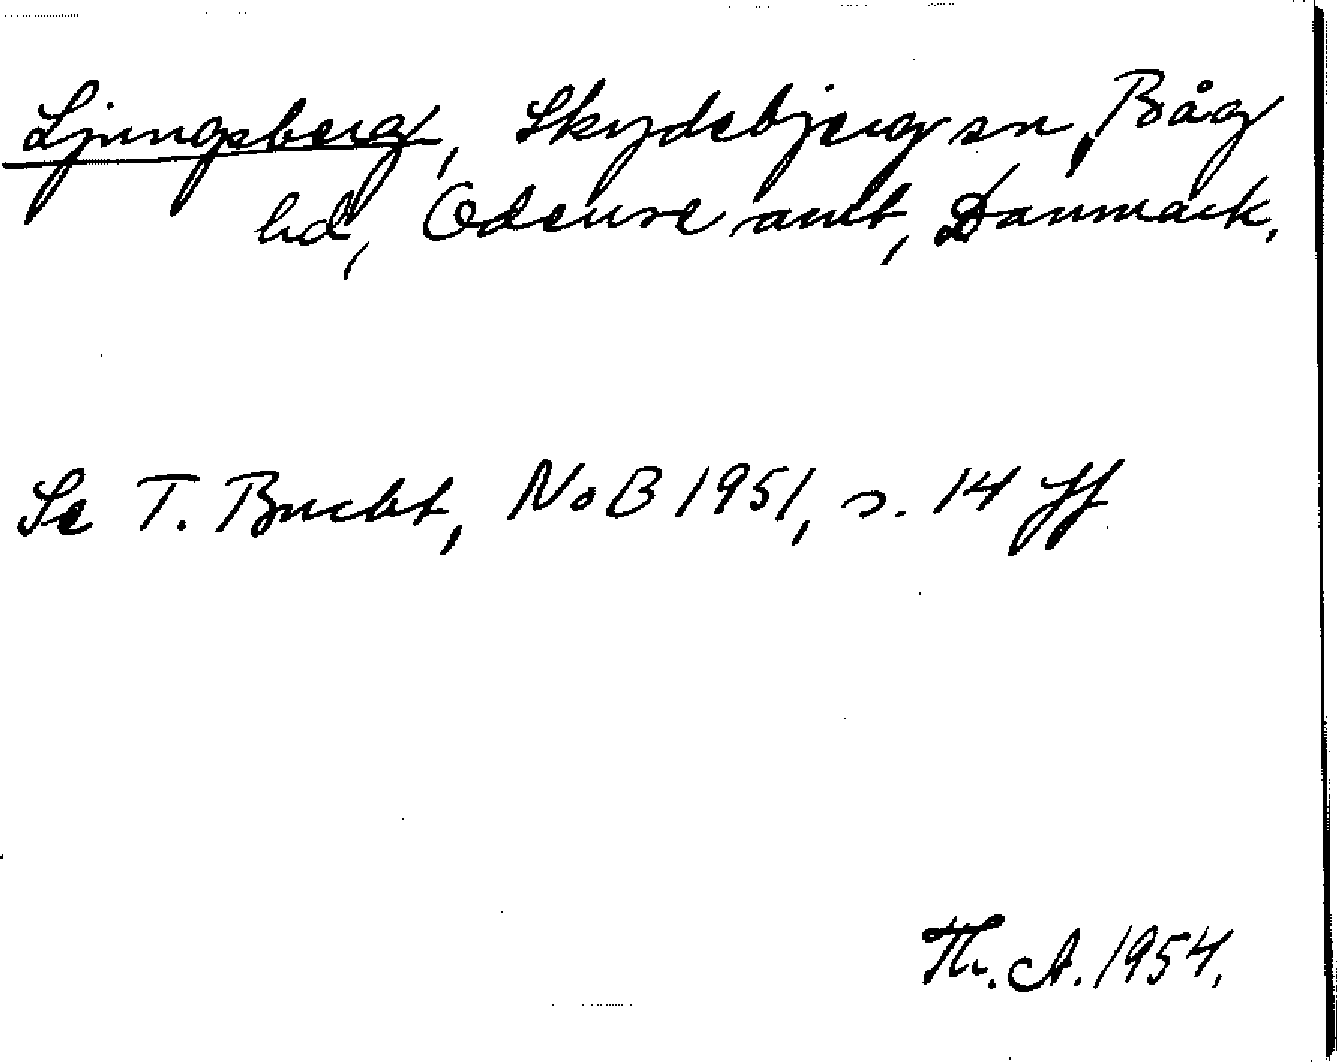 Ljungsberg, Skydebjerg sn, Båg
hd, Odense amt, Danmark.
Se T. Bucht, NoB 1951, s. 14 ff
Th. A. 1954.